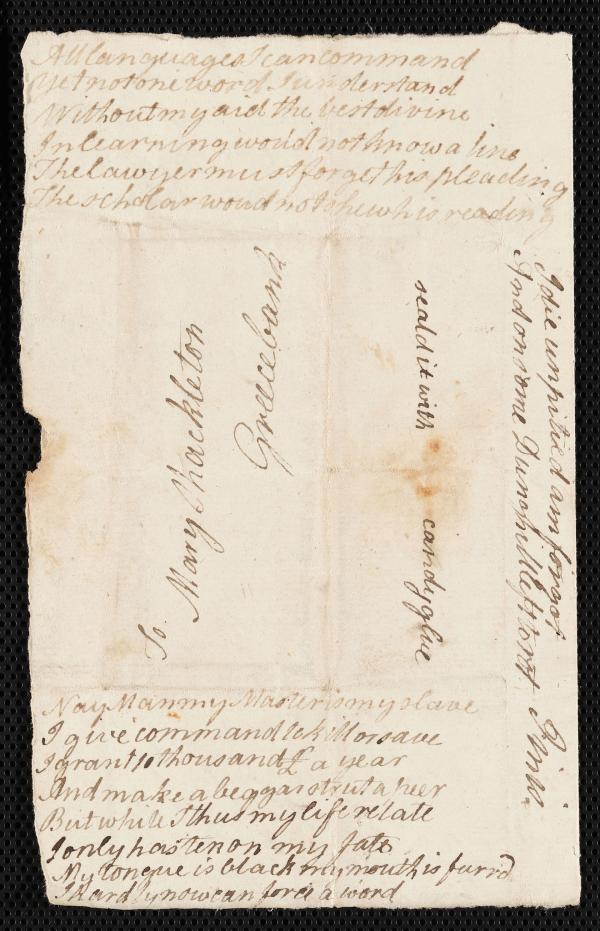 All languages I can command
Yet not one word I understand
Without my aid the best divine
In learning woud not know a line
The lawyer must forget his pleading
The scholar woud not shew his reading
To
Mary Shackleton
Greecebank
seald it with candy glue
Nay Man my Master is my slave
I give command to kill or save
I grant 10 thousand £ a year
And make a beggars brat a peer
But while I thus my life relate
I only hasten on my fate
My tongue is black my mouth is furrd
I hardly now can force a word
I die unpitied am forgot
And on some Dunghill left to rot